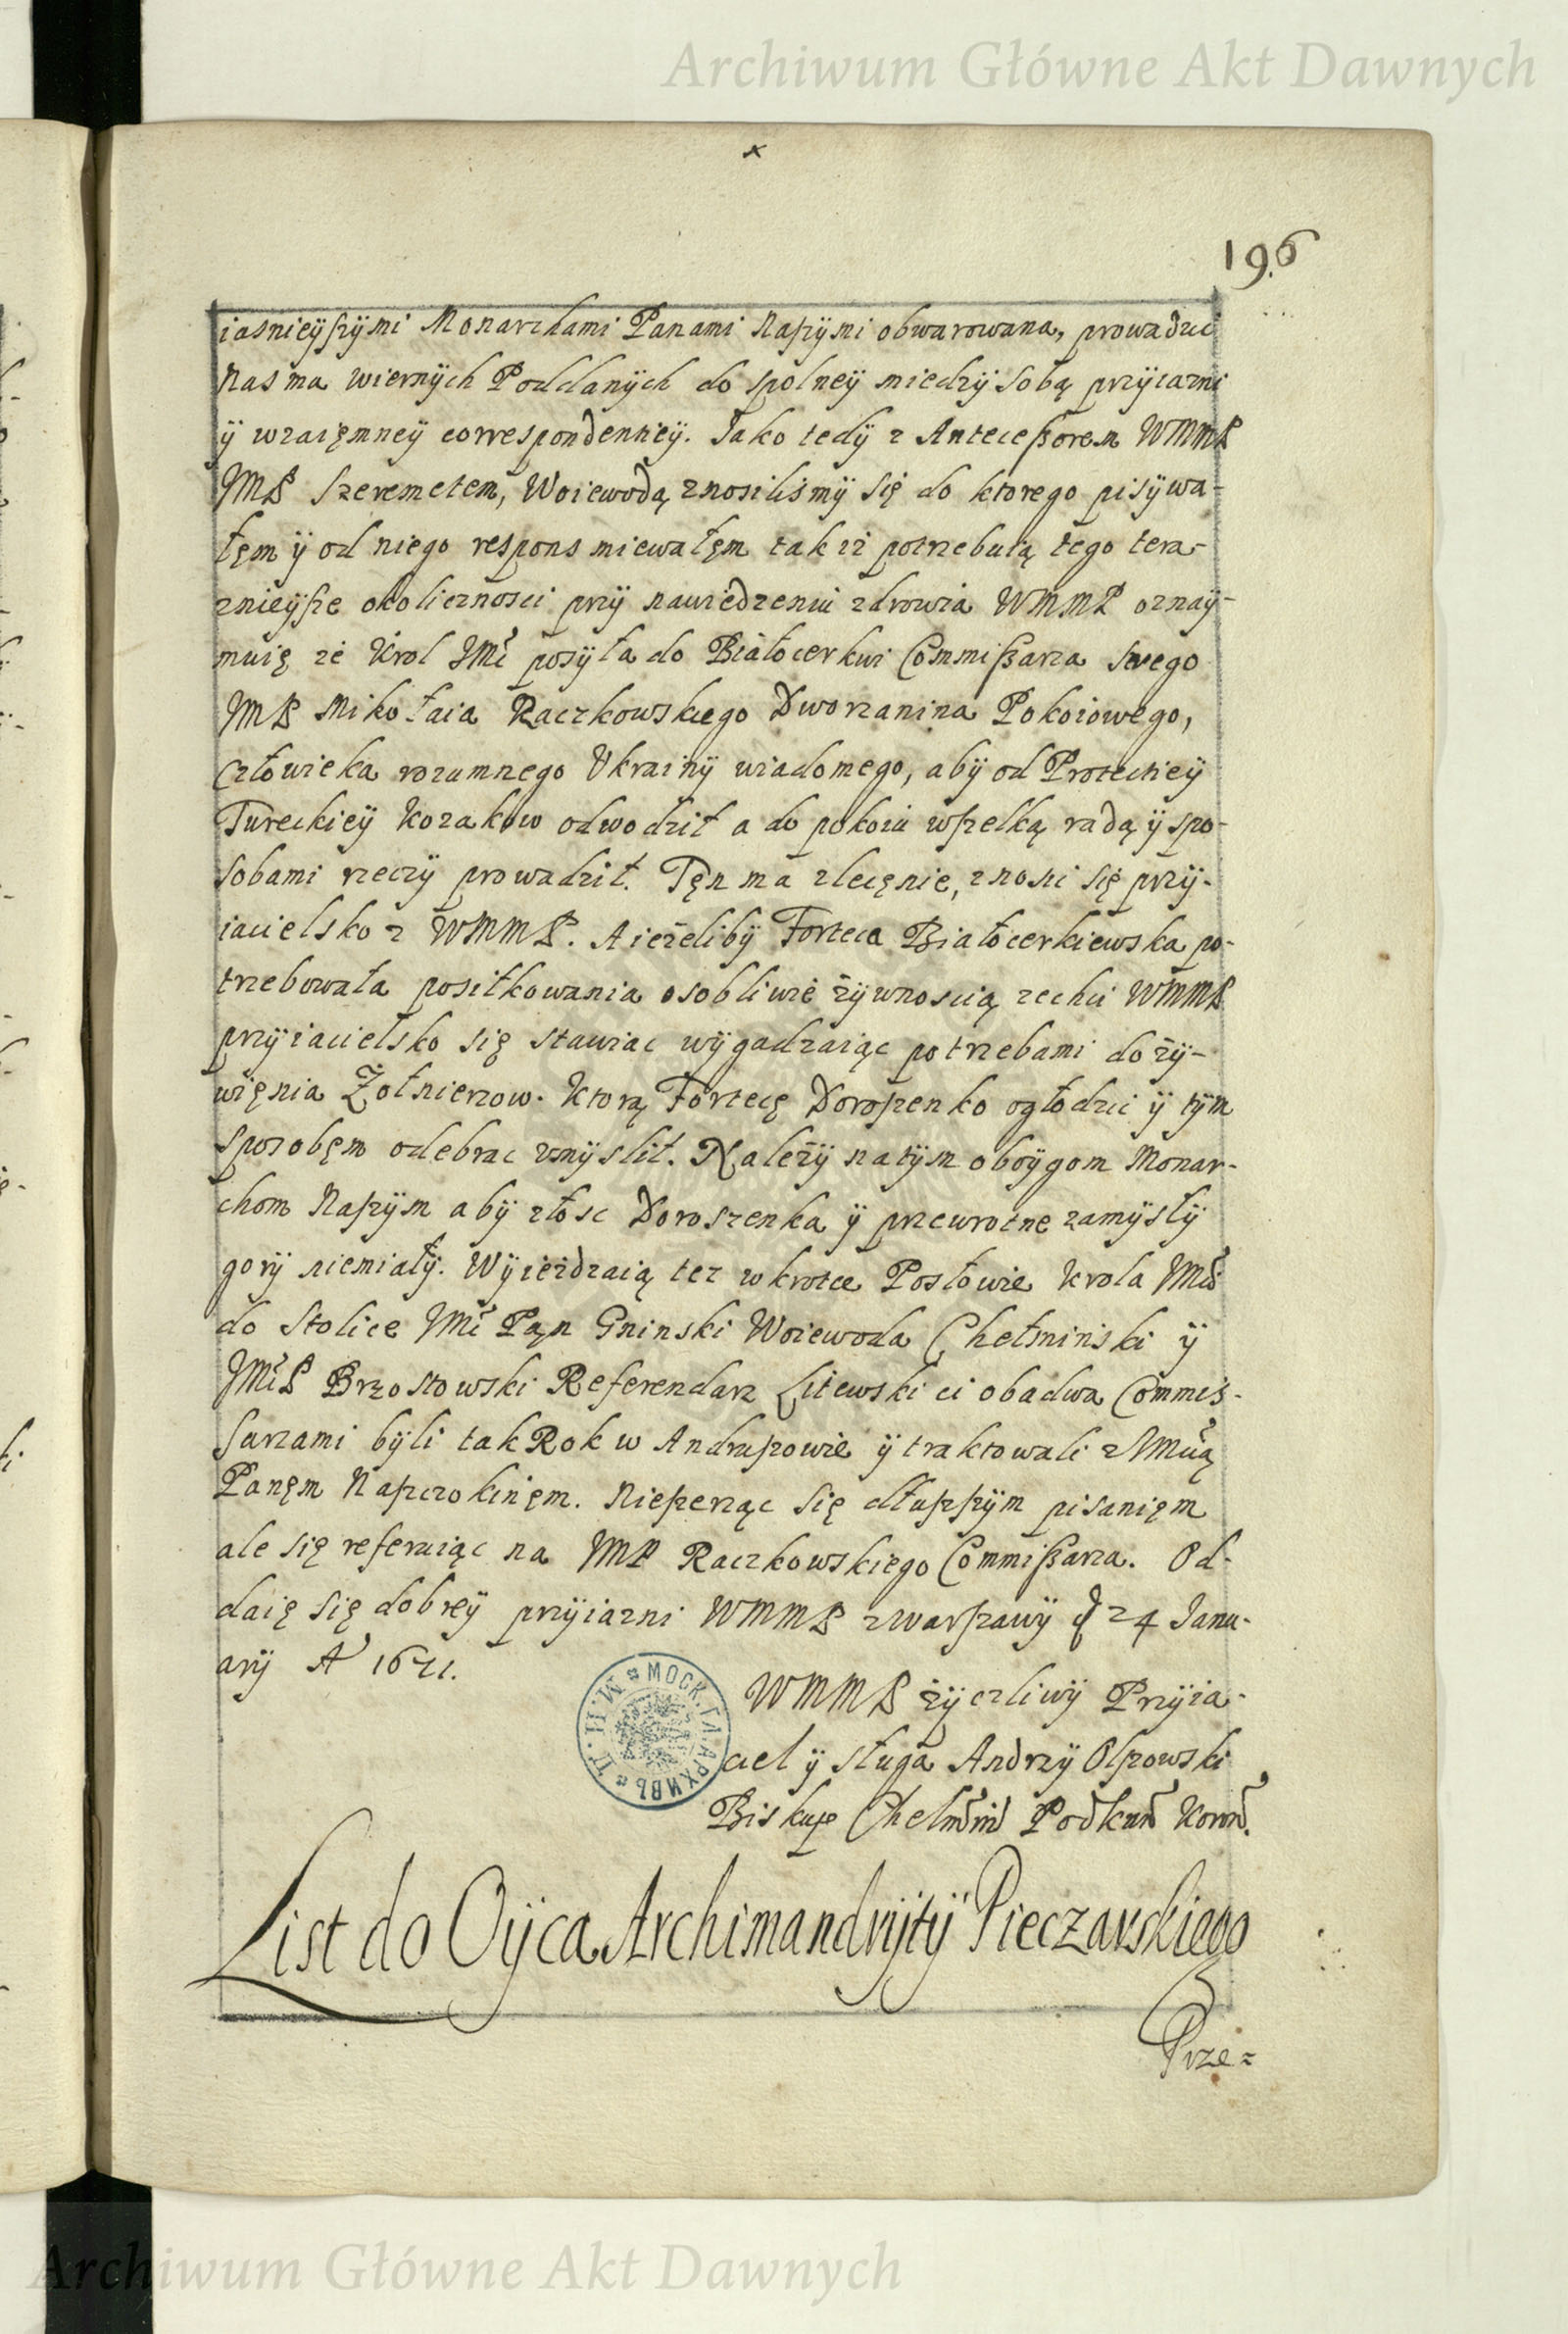 Archiwum Główne Akt Dawnych
x
196
iasnieyszymi Monarchami Panami Naszymi obwarowana, prowadzic
Nas ma wiernych Poddanych do spolney miedzy sobą przyiazni
ÿ wzaięmney correspondentiey. Jako tedy z Antecessorem WMMP
JMP Szeremetem, Woiewodą znosilismy się do ktorego pisywa-
łęm ÿ od niego respons miewałęm tak iż potrzebuią tego tera-
znieysze okolicznosci przy nawiedzeniu zdrowia WMMP oznay-
muię że Krol JMć posyła do Białocerkwi Commissarza swego
JMP Mikołaia Raczkowskiego Dworzanina Pokoiowego,
Człowieka rozumnego Ukrainy wiadomego, aby od Protectiey
Tureckiey Kozakow odwodził a do pokoiu wszelką radą ÿ spo-
sobami rzeczy prowadził. Tęn ma zlecęnie, znosić się przy-
iacielsko z WMMP. A ieżeliby Forteca Białocerkiewska po-
trzebowała posiłkowania osobliwie żywnoscią zechci WMMP
przyiacielsko się stawiac wygadzaiąc potrzebami do ży-
więnia Żołnierzow. Ktorą Fortecę Doroszenko ogłodzić ÿ tym
sposobęm odebrac umyslił. Należy na tym oboygom Monar-
chom Naszym aby złosc Doroszenka ÿ przewrotne zamysły
gory niemiały. Wyieżdzaią tez wkrotce Posłowie Krola JMći
do Stolice JMć Pąn Gninski Woiewoda Chełminski ÿ
JMćP Brzostowski Referendarz Litewski ci obadwa Commis-
sarzami byli tak Rok w Andruszowie ÿ traktowali z JMćią
Panęm Naszczokinęm. Nieszerząc się dłuszszym pisanięm
ale się referuiąc na JMP Raczkowskiego Commissarza. Od-
daię się dobrey przyiazni WMMP z Warszawy d 24 Janu-
ary A 1671.
WMMP życzliwy Przyia-
ciel ÿ sługa Andrzy Olszowski
Biskup Chełmiń Podkan Koron.
МОСК. ГЛ. АРХИВЪ М. И. Д.
List do Oÿca Archimandrÿtÿ Pieczarskiego
Prze=
Archiwum Główne Akt Dawnych